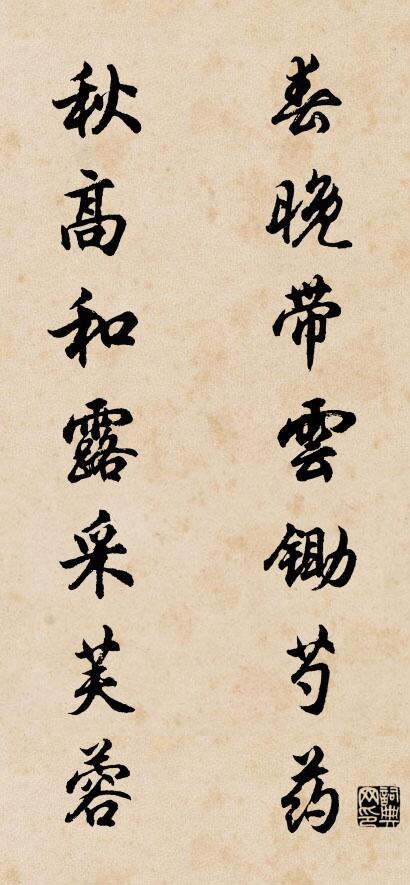 春晚带雲锄芍药
秋高和露采芙蓉
詞典网印